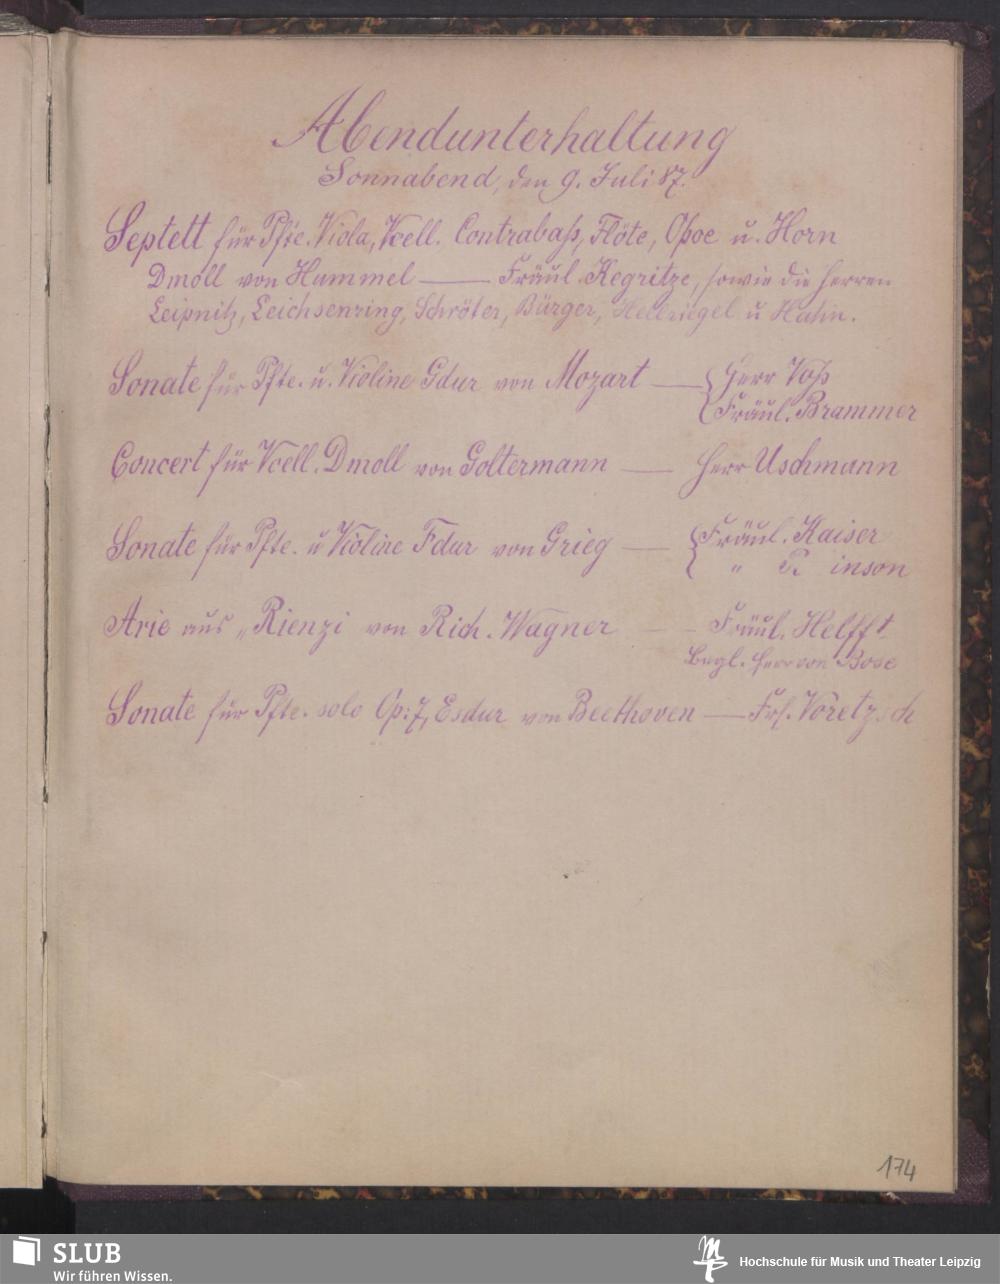 Abendunterhaltung
Sonnabend, den 9. Juli 87.
Septett für Pfte. Viola, Vcell. Contrabaß, Flöte, Oboe u. Horn
Dmoll von Hummel — Fräul. Kegritze, sowie die Herren
Leipnitz, Leichsenring, Schröter, Bürger, Hellriegel u Hahn.
Sonate für Pfte. u. Violine Gdur von Mozart — Herr Voß
Fräul. Brammer
Concert für Vcell. Dmoll von Goltermann — Herr Uschmann
Sonate für Pfte. u Violine Fdur von Grieg — Fräul. Kaiser
" inson
Arie aus „Rienzi von Rich. Wagner — Fräul. Helfft
Begl. Herr von Bose
Sonate für Pfte. solo Op: 7, Esdur von Beethoven — Frl. Voretzsch
174
SLUB
Wir führen Wissen.
Hochschule für Musik und Theater Leipzig